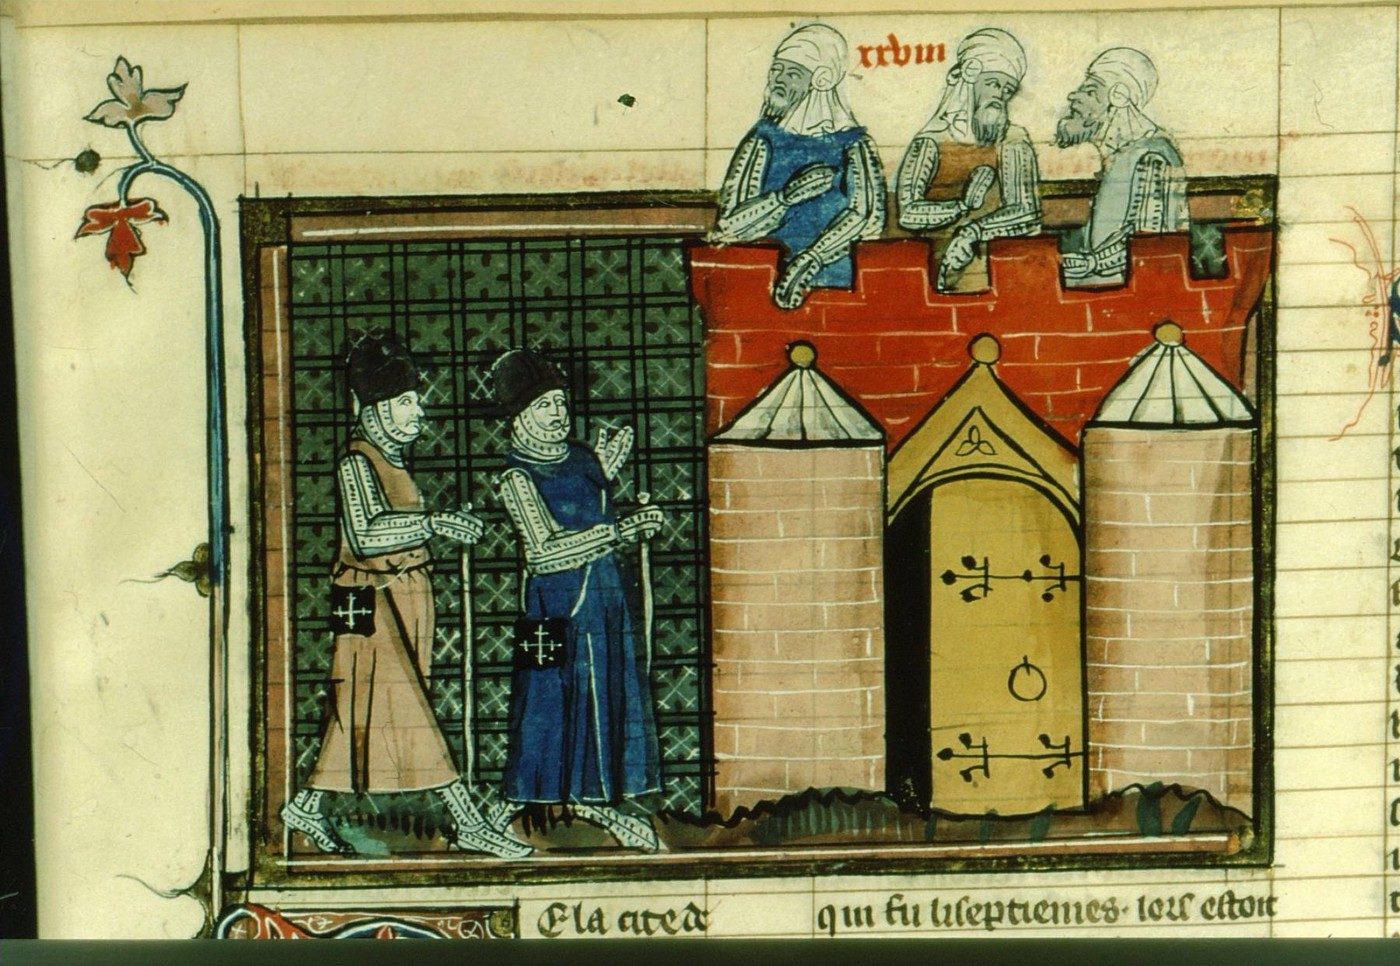 xxviii
E la cite de
qui fu li septiemes. lors estoit